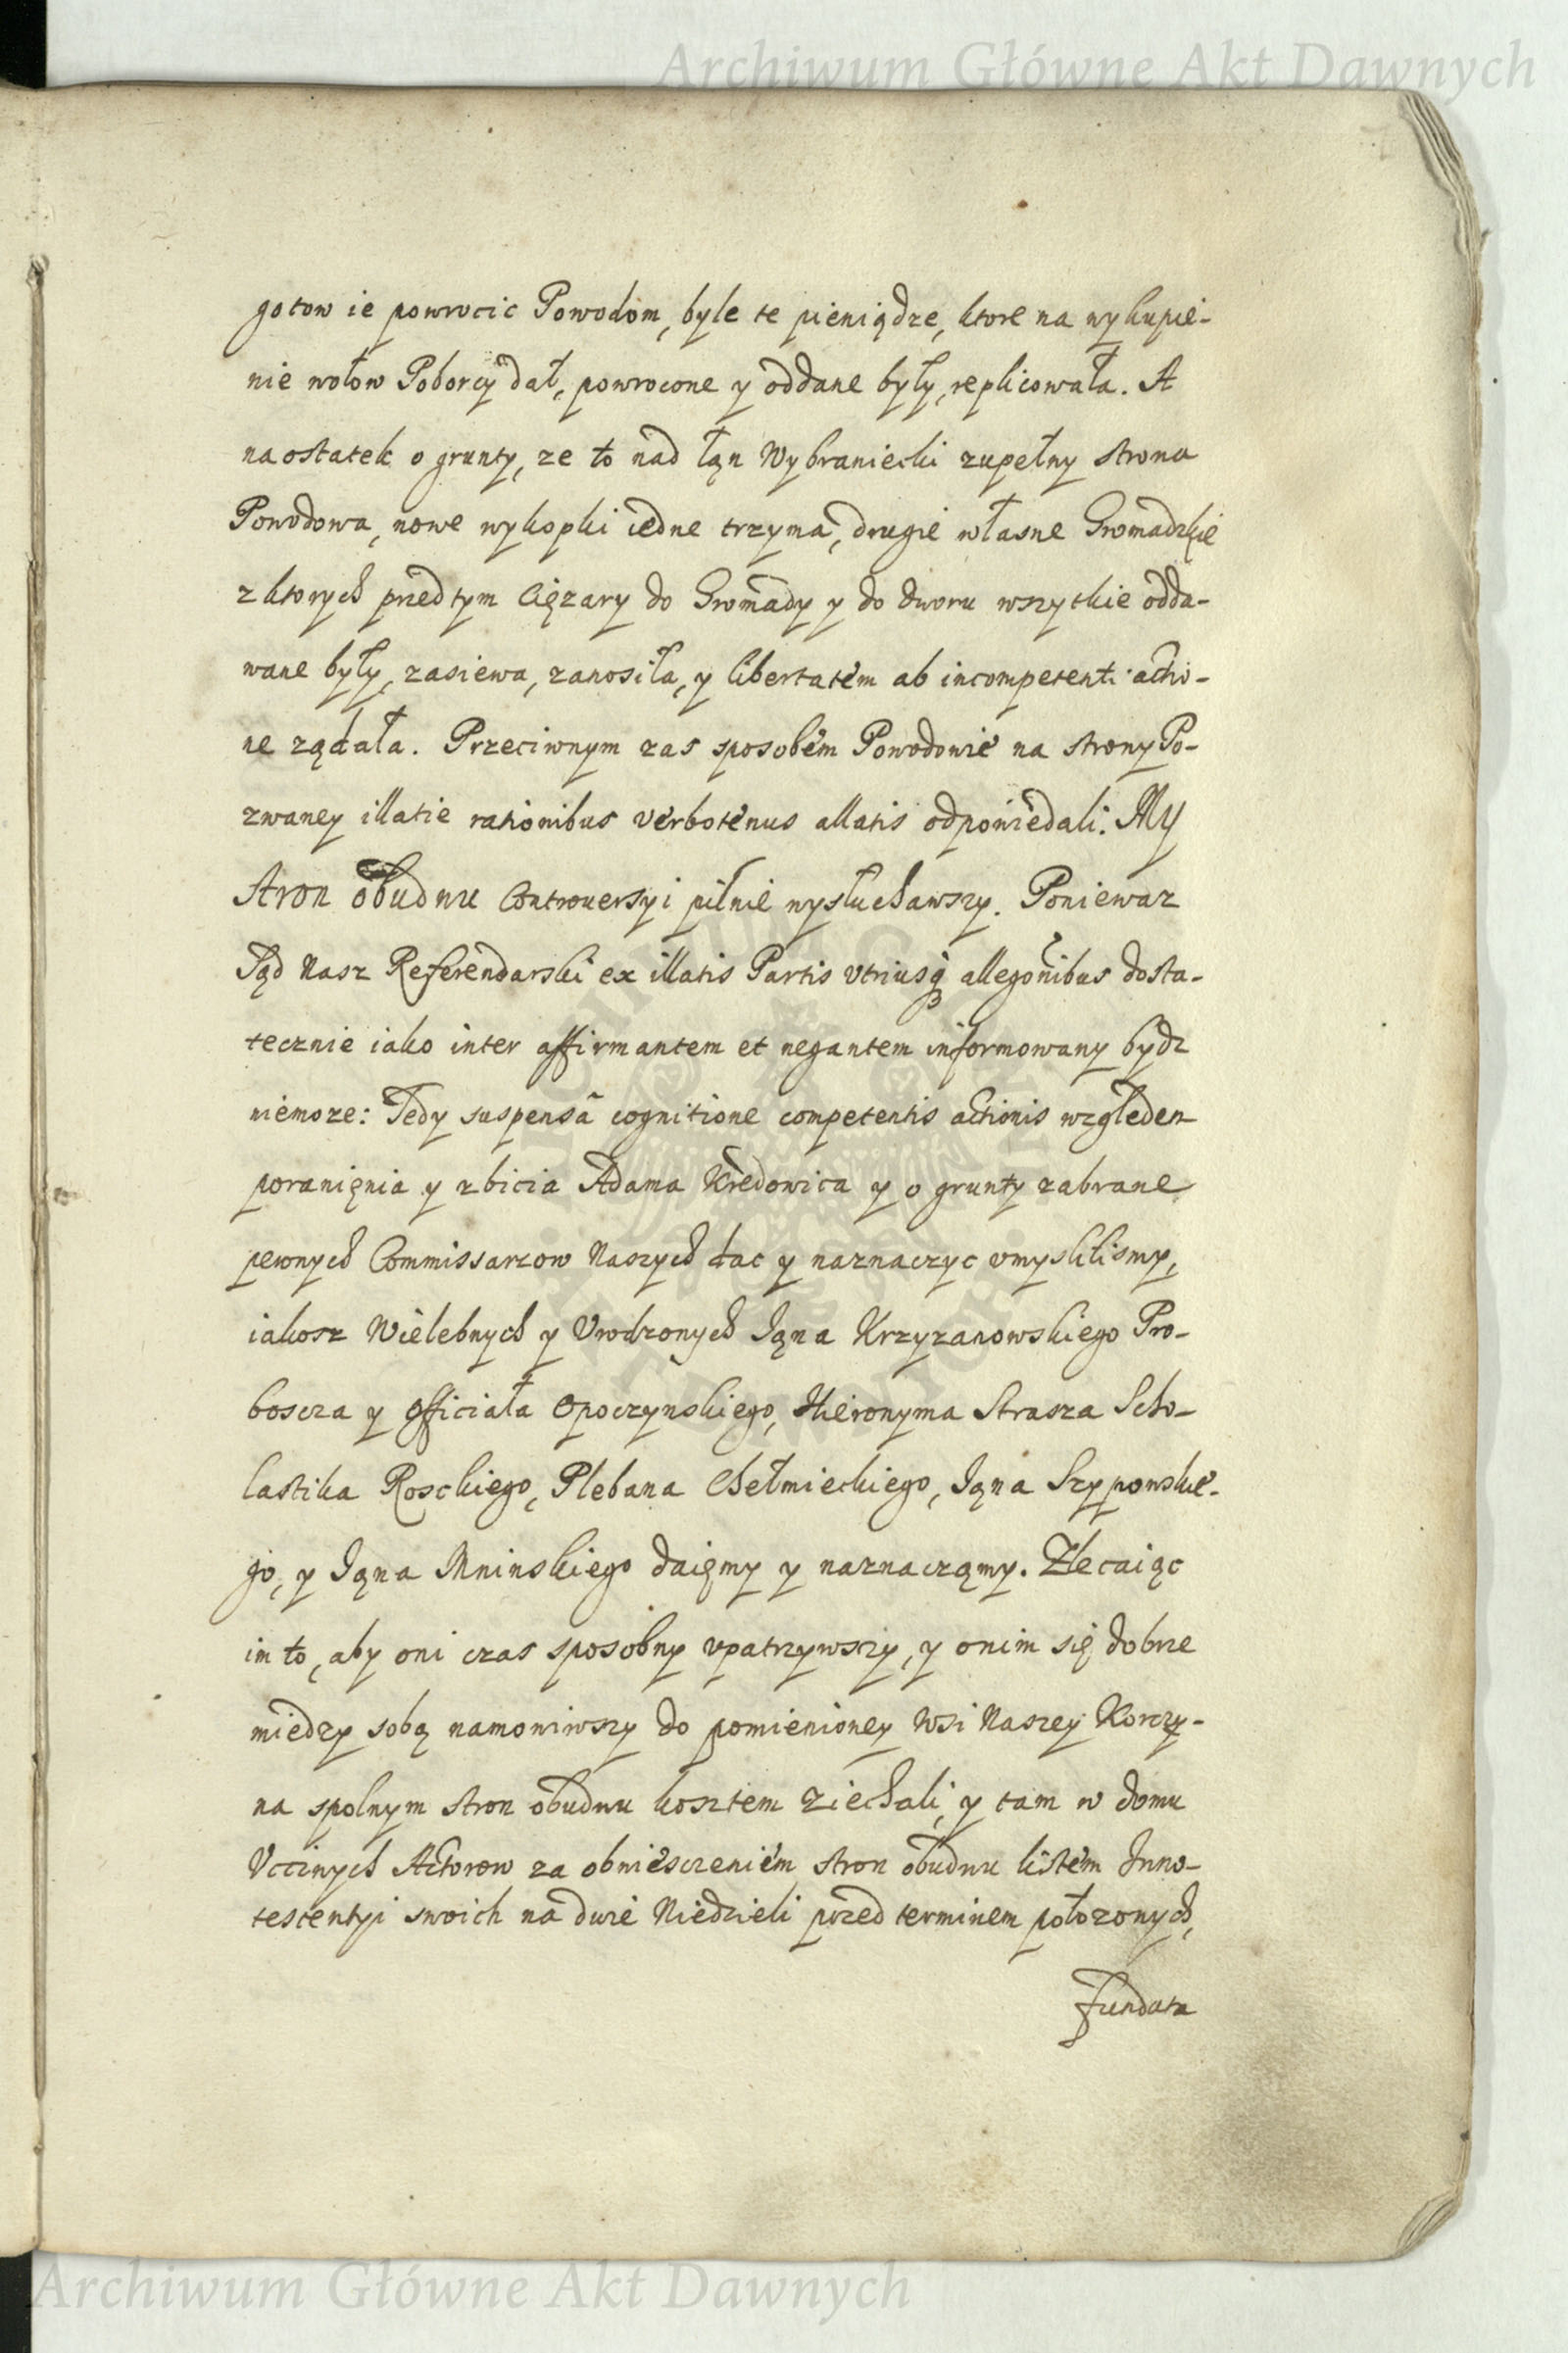 Archiwum Główne Akt Dawnych
gotow ie powrocic Powodom, byle te pieniądze, ktore na wykupie-
nie wołow Poborcy dał, powrocone y oddane były, replicowała. A
naostatek o grunty, ze to nad łąn Wybraniecki zupełny strona
Powodowa, nowe wykopki iedne trzyma, drugie własne Gromadzkie
z ktorych przedtym Ciężary do Gromady y do dworu wszytkie odda-
wane były, zasiewa, zanosiła, y libertatem ab incompetenti actio-
ne ządała. Przeciwnym zas sposobem Powodowie na strony Po-
zwaney illatie rationibus verbotenus allatis odpowiedali. My
stron obudwu Controuersyi pilnie wysłuchawszy. Poniewaz
Sąd Nasz Referendarski ex illatis Partis vtriusq allegonibus dosta-
tecznie iako inter affirmantem et negantem informowany bydz
niemoze: Tedy suspensa cognitione competentis actionis względem
poranięnia y zbicia Adama Kredowica y o grunty zabrane
pewnych Commissarzow Naszych dac y naznaczyc vmyslilismy,
iakosz Wielebnych y Vrodzonych Iąna Krzyzanowskiego Pro-
boscza y Officiała Opoczynskiego, Hieronyma Strasza Scho-
lastika Rosckiego, Plebana Chełmieckiego, Iąna Szypowskie-
go, y Iąna Mninskiego daięmy y naznacząmy. Zlecaiąc
im to, aby oni czas sposobny vpatrzywszy, y onim się dobrze
miedzy sobą namowiwszy do pomienioney Wsi Naszey Korczy-
na spolnym stron obudwu kosztem ziechali, y tam w domu
Vccinych Actorow za obwiesczeniem stron obudwu listem Inno-
tescentyi swoich na dwie Niedzieli przed terminem położonych,
fundata
Archiwum Główne Akt Dawnych